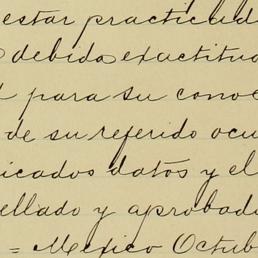 estar practicad
debida exactitu
para su cono
de su referido ocu
icados datos y el
ellado y aprobad
= Mexico Octub